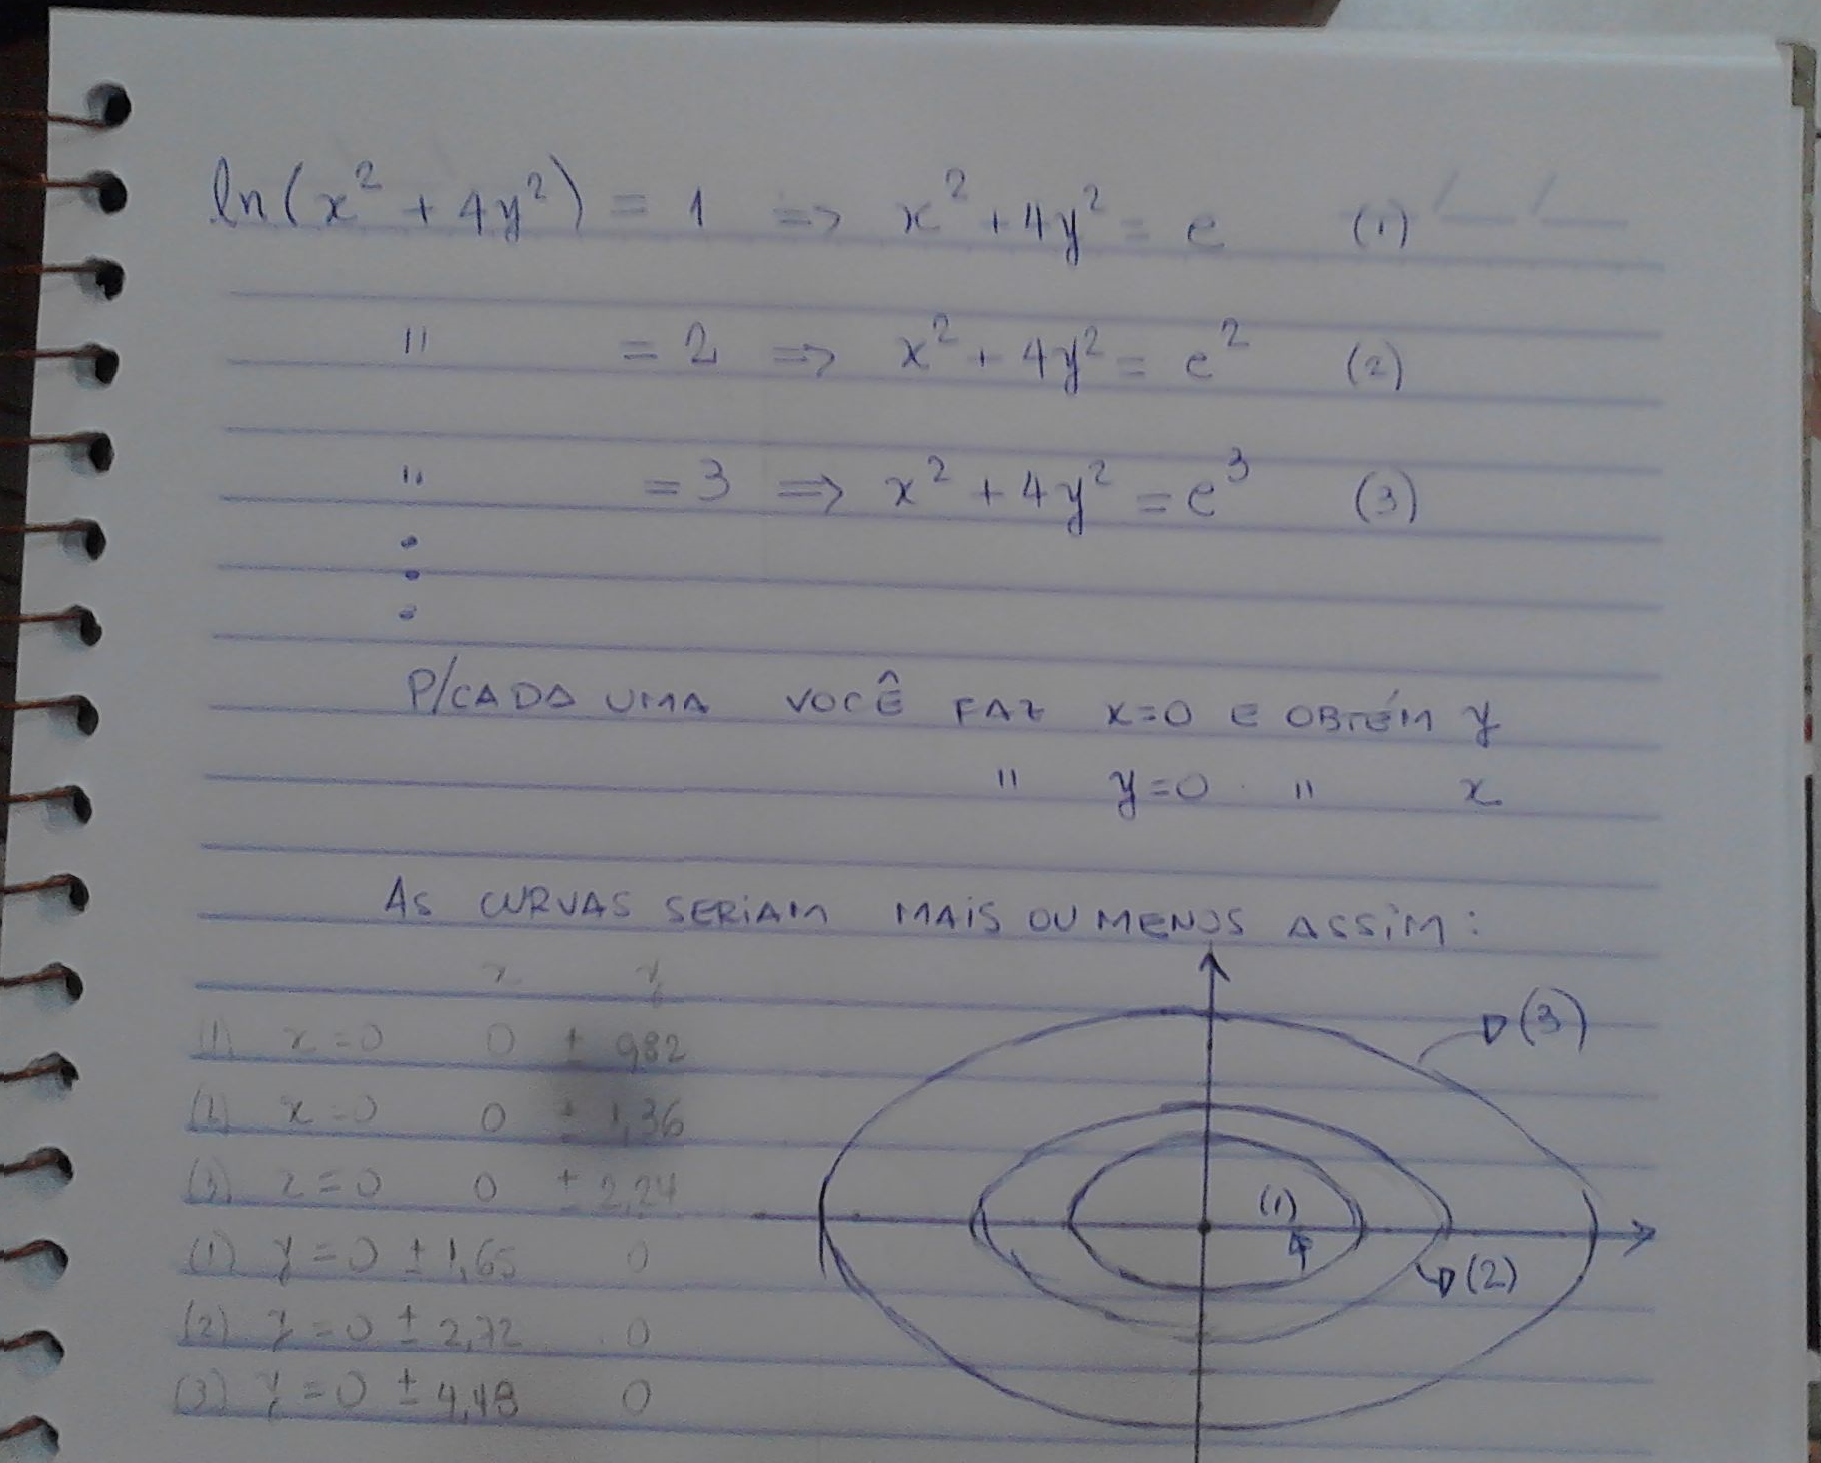 ln(x² + 4y²) = 1 => x² + 4y² = e (1)
" = 2 => x² + 4y² = e² (2)
" = 3 => x² + 4y² = e³ (3)
P/CADA UMA VOCÊ FAZ x=0 E OBTÉM y
" y=0 " x
AS CURVAS SERIAM MAIS OU MENOS ASSIM:
x y
(1) x=0 0 ± 982
(2) x=0 0 ± 1,36
(3) x=0 0 ± 2,24
(1) y=0 ± 1,65 0
(2) y=0 ± 2,72 0
(3) y=0 ± 4,48 0
(3)
(1)
(2)